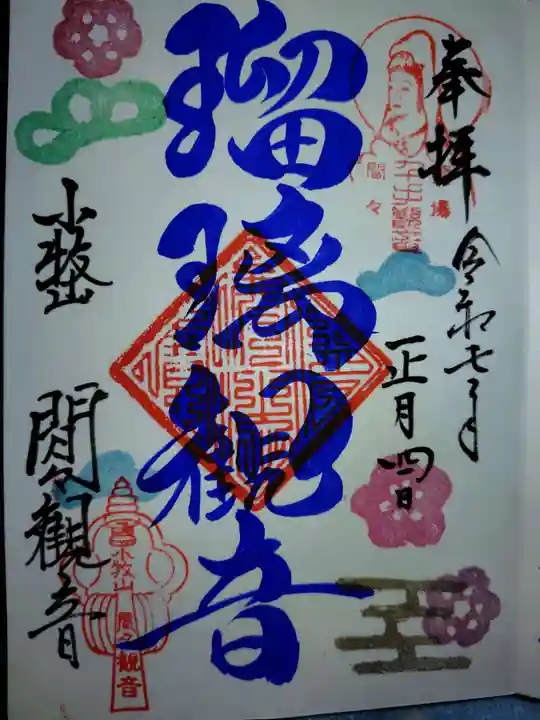 奉拝
令和七年
正月四日
瑠璃観音
小牧山
間々観音
間々
小牧山
間々観音